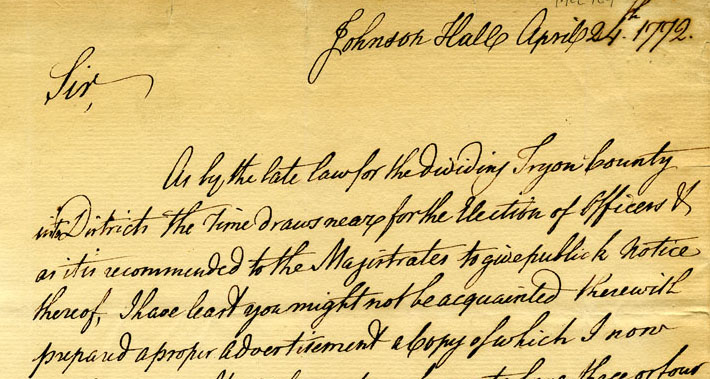 Johnson Hall April 24th. 1772.
Sir,
As by the late law for the dividing Tryon County
into Districts the Time draws near for the Election of Officers &
as it is recommended to the Magistrates to give publick Notice
thereof, I have least you might not be acquainted therewith
prepared a proper advertisement a Copy of which I now